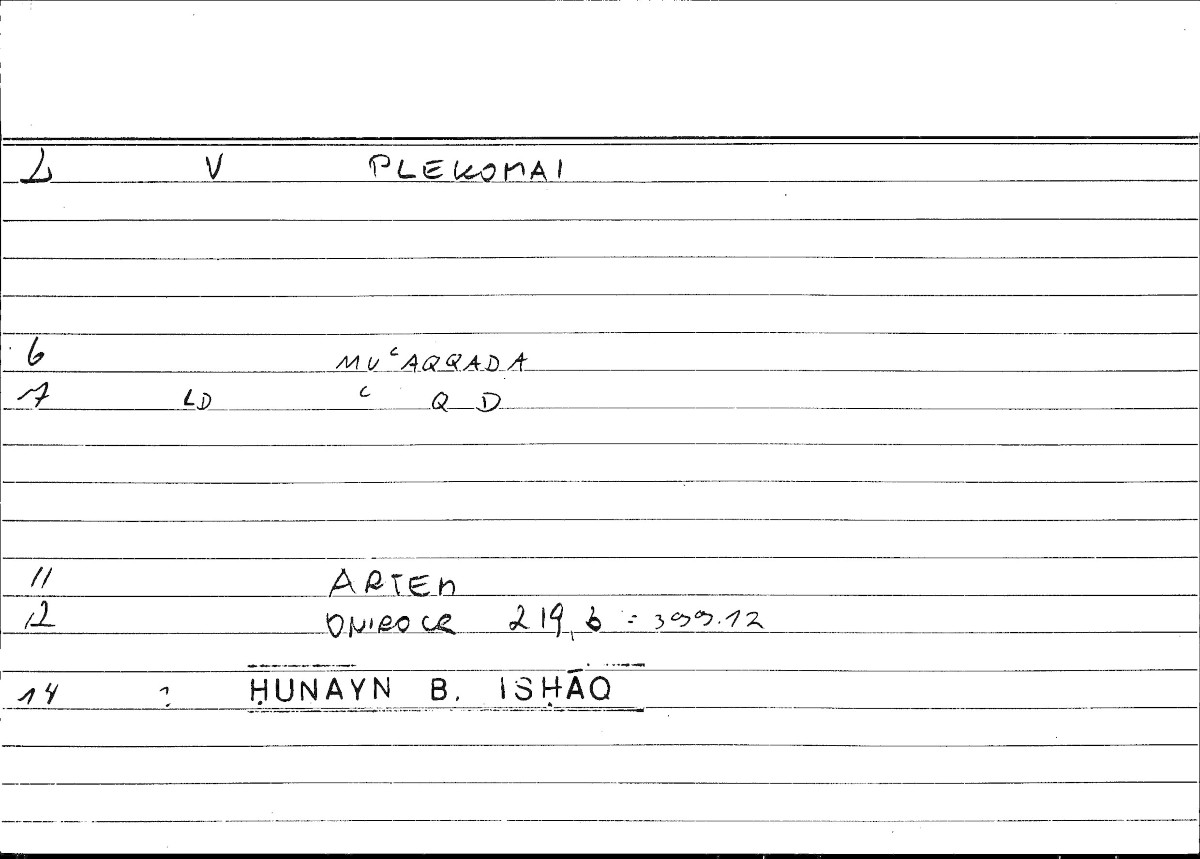 2 V PLEKOMAI
6 MUʿAQQADA
7 LD ʿ Q D
11 ARTEM
12 ONIROCR 219,6 = 399.12
14 ? ḤUNAYN B. ISḤĀQ